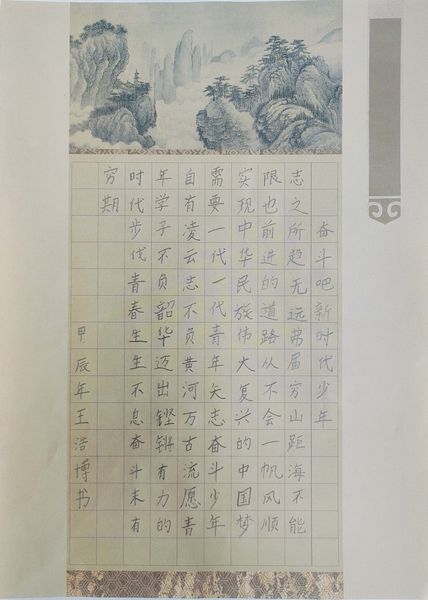 奋斗吧新时代少年
志之所趋无远弗届穷山距海不能
限也前进的道路从不会一帆风顺
实现中华民族伟大复兴的中国梦
需要一代一代青年矢志奋斗少年
自有凌云志不负黄河万古流愿青
年学子不负韶华迈出铿锵有力的
时代步伐青春生生不息奋斗未有
穷期
甲辰年王浩博书